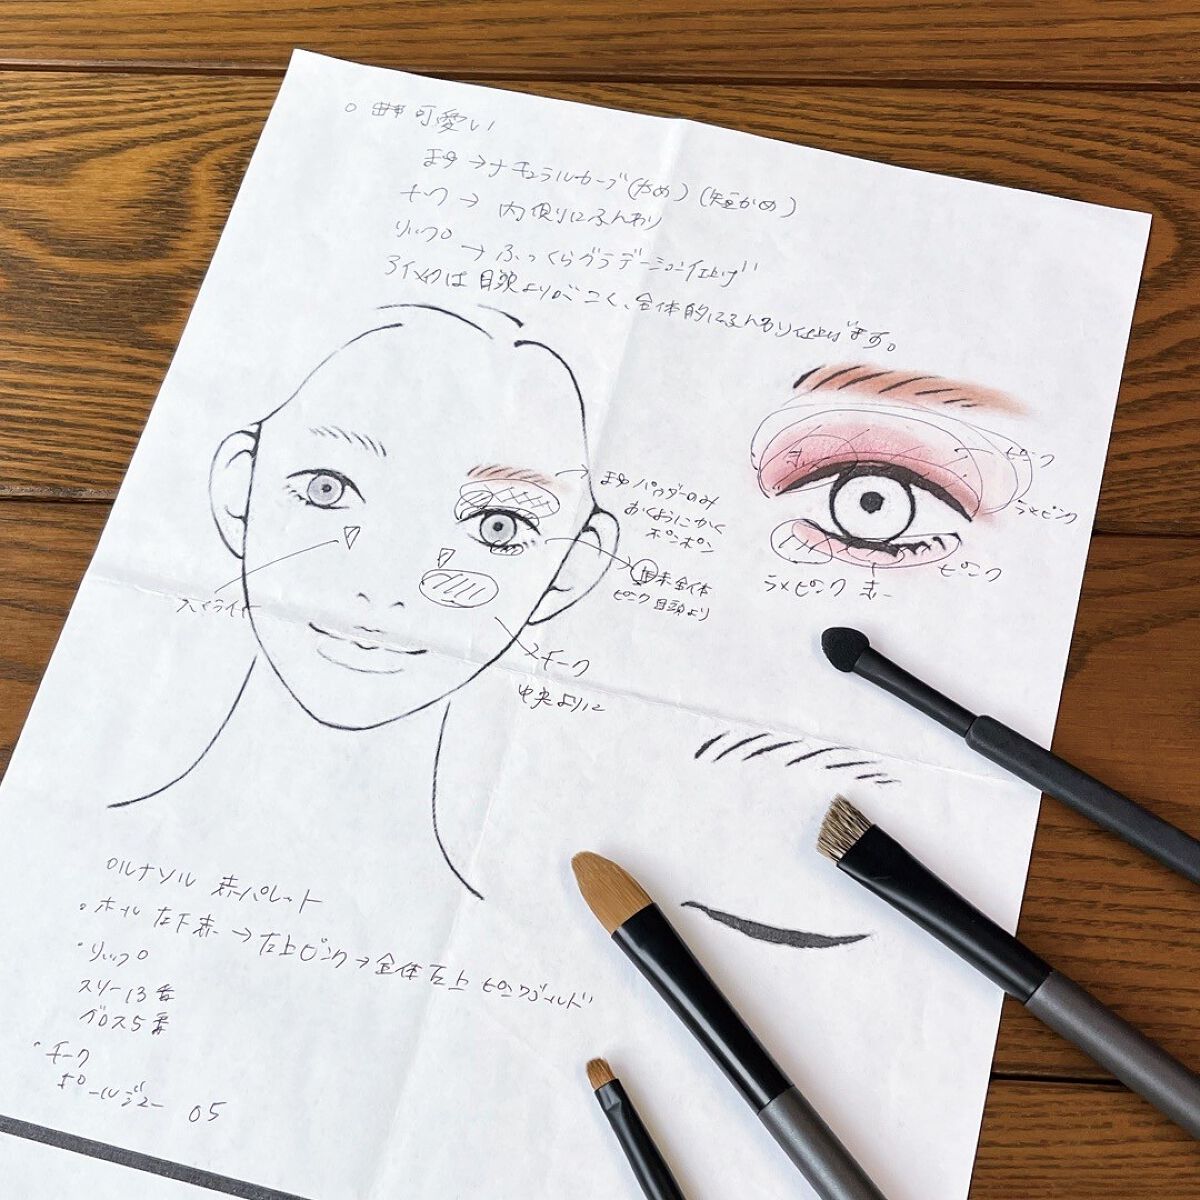 可愛い
まゆ→ナチュラルカーブ(太め)(短かめ)
チーク→内側にふんわり
リップ→ふっくらグラデーション仕上げ
アイメイクは目頭より濃く、全体的にふんわり仕上げます。
ピンク
まゆパウダーのみ
かくようにかく
ポンポン
ラメピンク
ラメピンク
赤
ピンク
全体
ピンク 目頭より
ハイライト
チーク
中央よりに
ルナソル 赤パレット
ホール 左下赤→左上ピンク→全体右上ピンクゴールド
リップ
スリー13番
グロス5番
チーク
ポール&ジョー 05